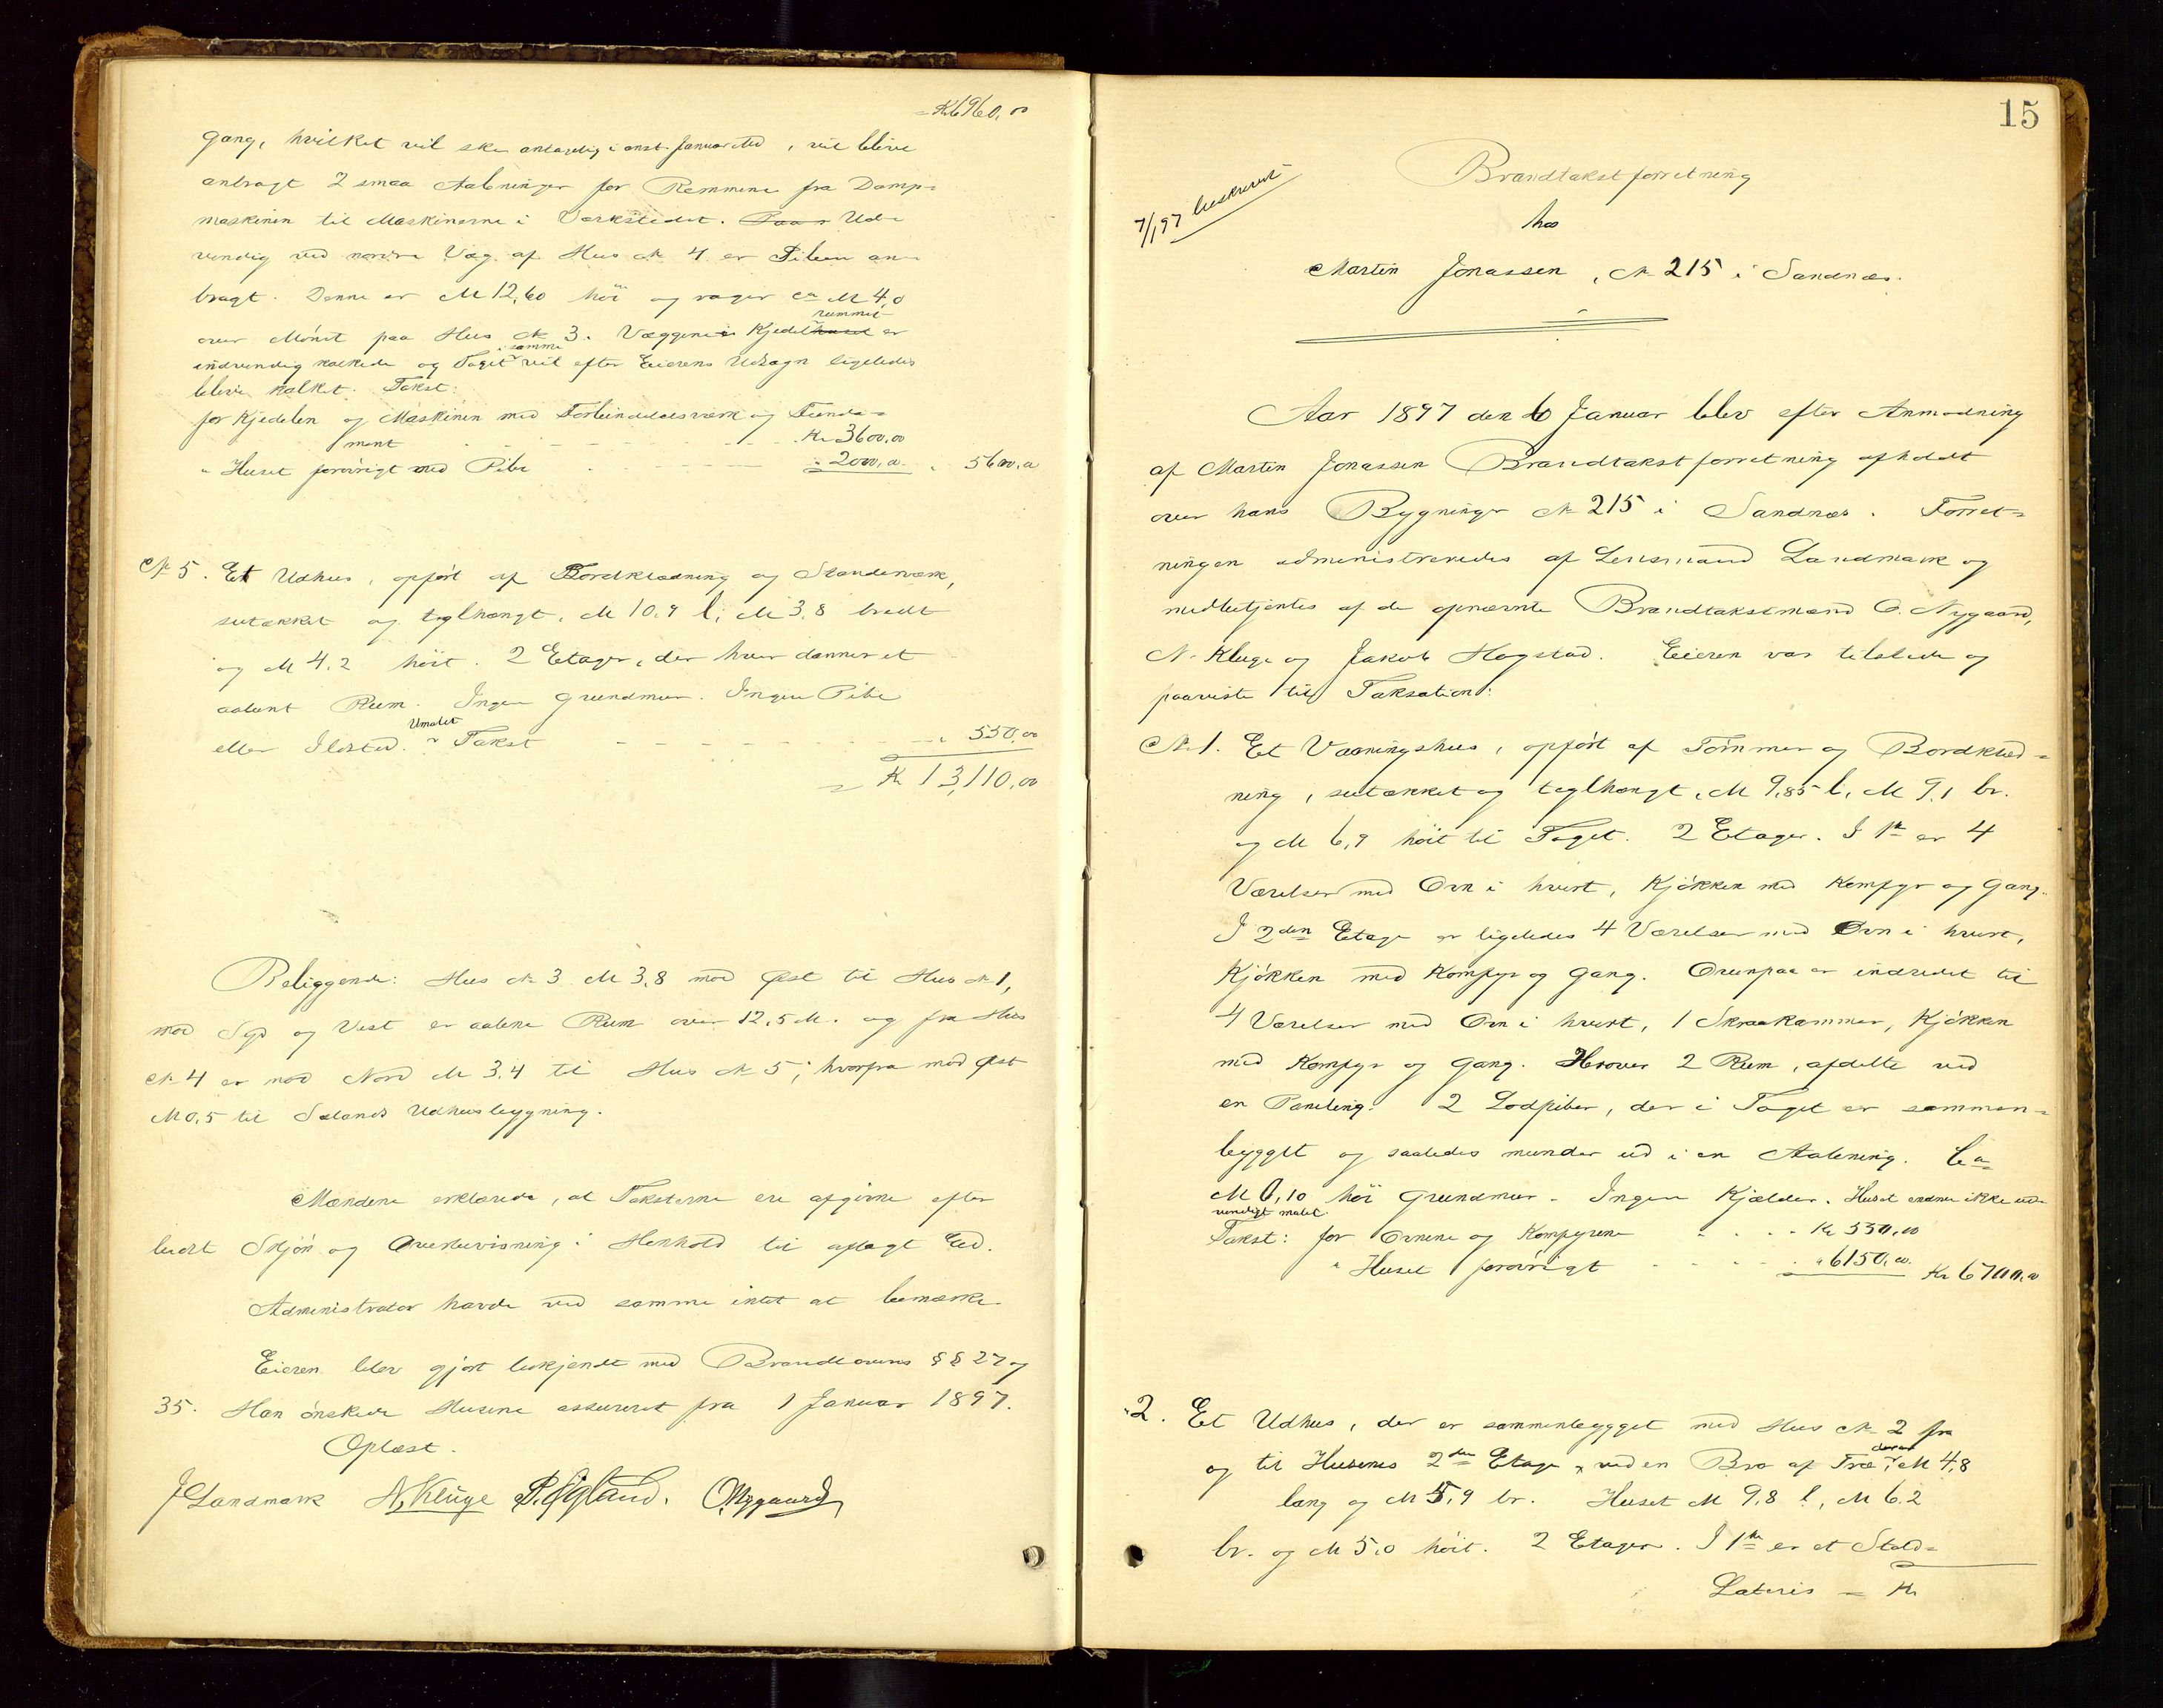 = Kr 6960,00
gang, hvilket vil ske antagelig i anst. Januar Md, vil blive
anbragt 2 smaa Aabninger for Remmene fra Damp-
maskinen til Maskinerne i Værkstedet. Ud-
vendig ved nordre Væg af Hus № 4 er Piben an-
bragt. Denne er M 12,60 høi og rager ca M 4,0
over Mønet paa Hus № 3. Væggene i Kjedelrummet er
indvendig kalkede og Taget i samme vil efter Eierens Udsagn ligeledes
blive kalket. Takst:
for Kjedelen og Maskinen med Forbindelsesværk og Funda-
ment Kr 3600,00
" Huset forøvrigt med Pibe " 2000,00 " 5600,00
№ 5. Et Udhus, opført af Bordklædning og Standerværk,
sutækket og teglhængt, M 10.9 l, M 3,8 bredt
og M 4.2 høit. 2 Etager, der hver danner et
aabent Rum. Ingen Grundmur. Ingen Pibe
eller Ildsted. Umalet Takst " 550,00
= Kr 13,110,00
Beliggende: Hus № 3 M 3,8 mod Øst til Hus № 1,
mod Syd og Vest er aabne Rum over 12,5 M. og fra Hus
№ 4 er mod Nord M 3.4 til Hus № 5, hvorfra mod Øst
M 0,5 til Sælands Udhusbygning.
Mændene erklærede, at Taksterne ere afgivne efter
bedst Skjøn og Overbevisning i Henhold til aflagt Ed.
Administrator havde ved samme intet at bemærke
Eieren blev gjort bekjendt med Brandlovens §§ 27 og
35. Han ønskede Husene assureret fra 1 Januar 1897.
Oplæst.
J Landmark N. Kluge O. Nygaard
15
7/1 97 beskrevet
Brandtakstforretning
hos
Martin Jonassen, № 215 i Sandnæs.
Aar 1897 den 6 Januar blev efter Anmodning
af Martin Jonassen Brandtakstforretning afholdt
over hans Bygninger № 215 i Sandnæs. Forret-
ningen administreredes af Lensmand Landmark og
medbetjentes af de opnævnte Brandtakstmænd O. Nygaard,
N. Kluge og Jakob Hogstad. Eieren var tilstede og
paaviste til Taksation:
№ 1. Et Vaaningshus, opført af Tømmer og Bordklæd-
ning, sutækket og teglhængt, M 9,85 l, M 9,1 br.
og M 6,9 høit til Taget. 2 Etager. I 1ste er 4
Værelser med Ovn i hvert, Kjøkken med Komfyr og Gang.
I 2den Etage er ligeledes 4 Værelser med Ovn i hvert,
Kjøkken med Komfyr og Gang. Ovenpaa er indredet til
4 Værelser med Ovn i hvert, 1 Skraakammer, Kjøkken
med Komfyr og Gang. Herover 2 Rum, afdelte ved
en Paneling. 2 Lodpiber, der i Taget er sammen-
bygget og saaledes munder ud i en Aabning. Ca
M 0,10 høi Grundmur. Ingen Kjælder. Huset endnu ikke ud-
vendigt malet.
Takst: for Ovnene og Komfyrene Kr 550,00
" Huset forøvrigt " 6150,00. Kr 6700,00
"2. Et Udhus, der er sammenbygget med Hus № 2 fra
og til Husenes 2den Etage ved en Bro af Træ, M 4,8
lang og M 5,9 br. Huset M 9,8 l, M 6.2
br. og M 5,0 høit. 2 Etager. I 1ste er et Stald-
Lateris = Kr